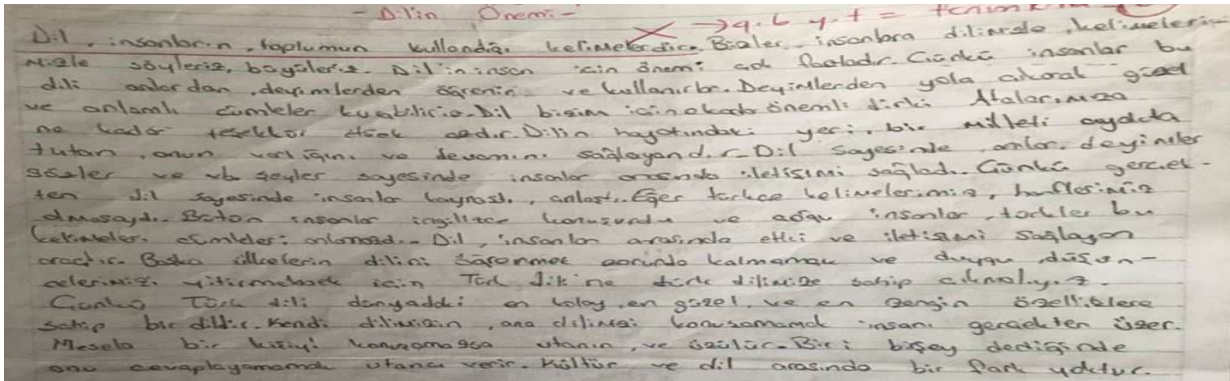 - Dilin Önemi -
Dil, insanların, toplumun kullandığı kelimelerdir. Bizler, insanlara dilimizle, kelimeleri-
mizle söyleriz, büyüleriz. Dilin insan için önemi çok fazladır. Çünkü insanlar bu
dili onlardan, deyimlerden öğrenir ve kullanırlar. Deyimlerden yola çıkarak güzel
ve anlamlı cümleler kurabiliriz. Dil bizim için o kadar önemli dirki Atalarımıza
ne kadar teşekkür etsek azdır. Dilin hayatındaki yeri, bir milleti ayakta
tutan, onun varlığını ve devamını sağlayandır. Dil sayesinde, onlar, deyimler
sözler ve vb şeyler sayesinde insanlar arasında iletişimi sağladı. Çünkü gerçek-
ten dil sayesinde insanlar kaynaştı, anlaştı. Eğer türkçe kelimelerimiz, harflerimiz
olmasaydı. Bütün insanlar ingilizce konuşurdu ve çoğu insanlar, türkler bu
kelimeleri cümleleri anlamadı. Dil, insanlar arasında etkici ve iletişimi sağlayan
araçtır. Başka ülkelerin dilini öğrenmek zorunda kalmamak ve duygu, düşün-
celerimizi yitirmemek için Türk dili ne türk dilimize sahip çıkmalıyız.
Çünkü Türk dili dünyaddki en kolay, en güzel, ve en zengin özelliklere
sahip bir dildir. Kendi dilimizin, ana dilimizi konuşamamak insanı gerçekten üzer.
Mesela bir kişiyi konuşamazsa utanır, ve üzülür. Biri bişey dediğinde
onu cevaplayamamak utanç verir. Kültür ve dil arasında bir fark yoktur.